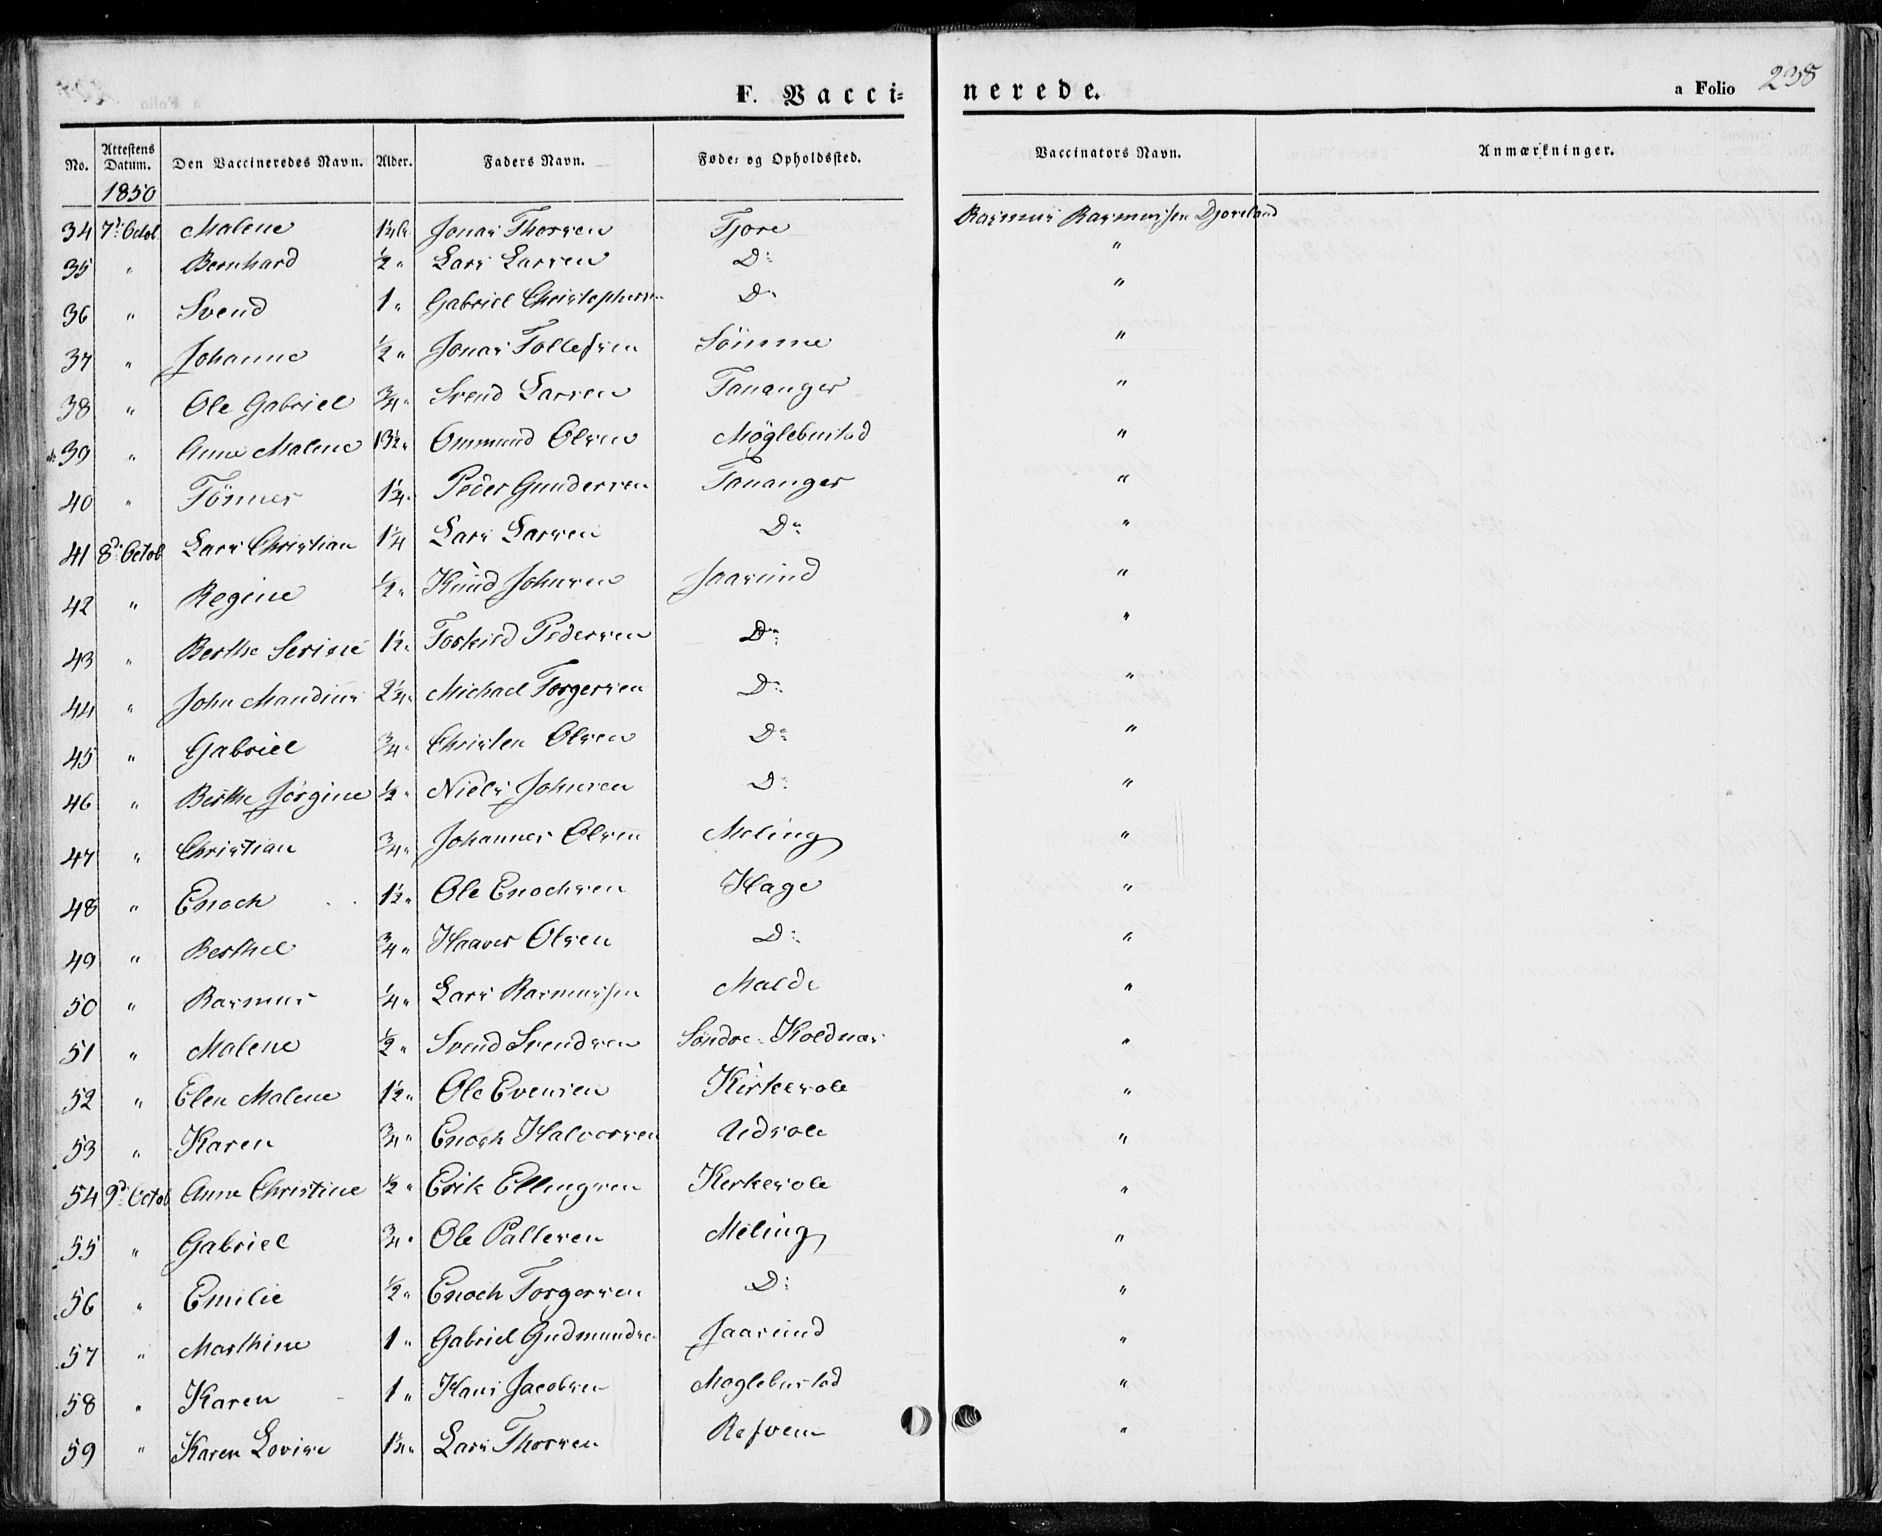 F. Vaccinerede.
a Folio 238
No. Attestens Datum. Den Vaccineredes Navn. Alder. Faders Navn. Føde= og Opholdssted. Vaccinators Navn. Anmærkninger.
1850
34 7d. Octob Malene Jonas Thorsen Tjore Rasmus Rasmussen
35 " Bernhard ½ " Lars Larsen D: "
36 " Svend 1 " Gabriel Christophersen D: "
37 " Johanne ½ " Jonas Tollefsen Sömme "
38 " Ole Gabriel ¾ " Svend Larsen Tananger "
39 " Anne Malene 13½ " Ommund Olsen Möglebustad "
40 " Tönnes 1¼ " Peder Gundersen Tananger "
41 8d. Octob Lars Christian 1¼ Lars Larsen D: "
42 " Regine ½ " Knud Johnsen Jaasund "
43 " Berthe Serine 1½ " Toskild Pedersen D: "
44 " John Mandius 2¼ " Michael Torgersen D: "
45 " Gabriel ¾ " Christen Olsen D: "
46 " Berthe Jörgine ½ " Niels Johnsen D: "
47 " Christian ¾ " Johannes Olsen Meling "
48 " Enoch 1½ " Ole Enochsen Hage "
49 " Berthel ¾ " Haaver Olsen D: "
50 " Rasmus ¼ " Lars Rasmussen Malde "
51 " Malene ½ " Svend Svendsen Söndre Koldnæs "
52 " Elen Malene 1½ " Ole Evensen Kirkesole "
53 " Karen ¾ " Enoch Halvorsen Udsole "
54 9d. Octob Anne Christine ½ " Erik Ellingsen Kirkesole "
55 " Gabriel ¾ " Ole Pallesen Meling "
56 " Emilie ½ " Enoch Torgersen D: "
57 " Marthine 1 " Gabriel Gudmundsen Jaasund "
58 " Karen 1 " Hans Jacobsen Moglebustad "
59 " Karen Lovise Lars Thorsen Refvem "